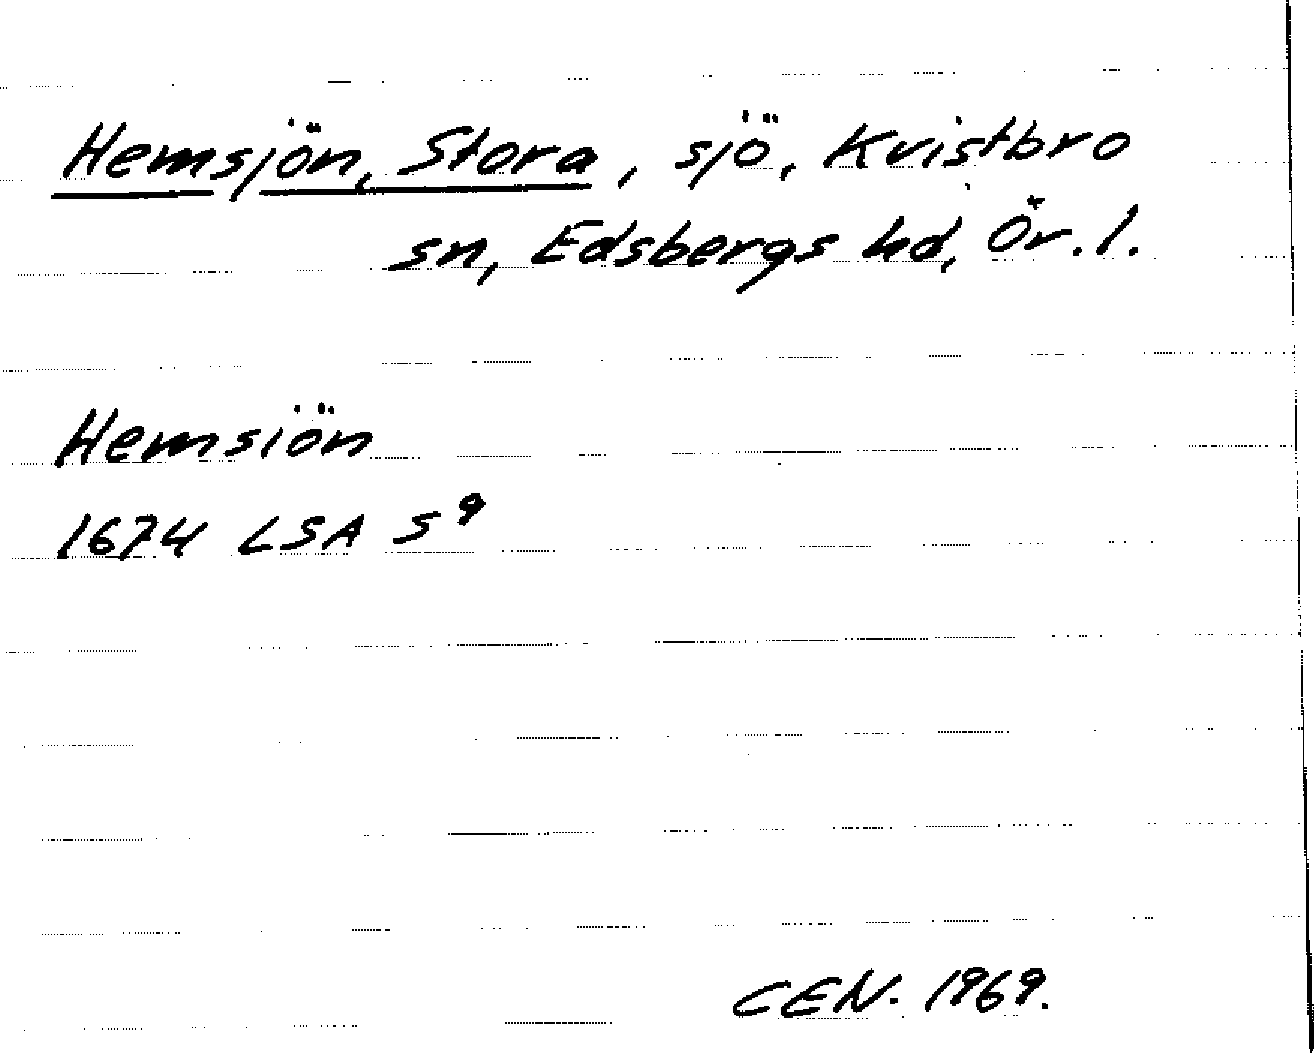 Hemsjön, Stora, sjö, Kvistbro
sn, Edsbergs hd, Ör. l.
Hemsiön
1674 LSA S⁹
CEN. 1969.